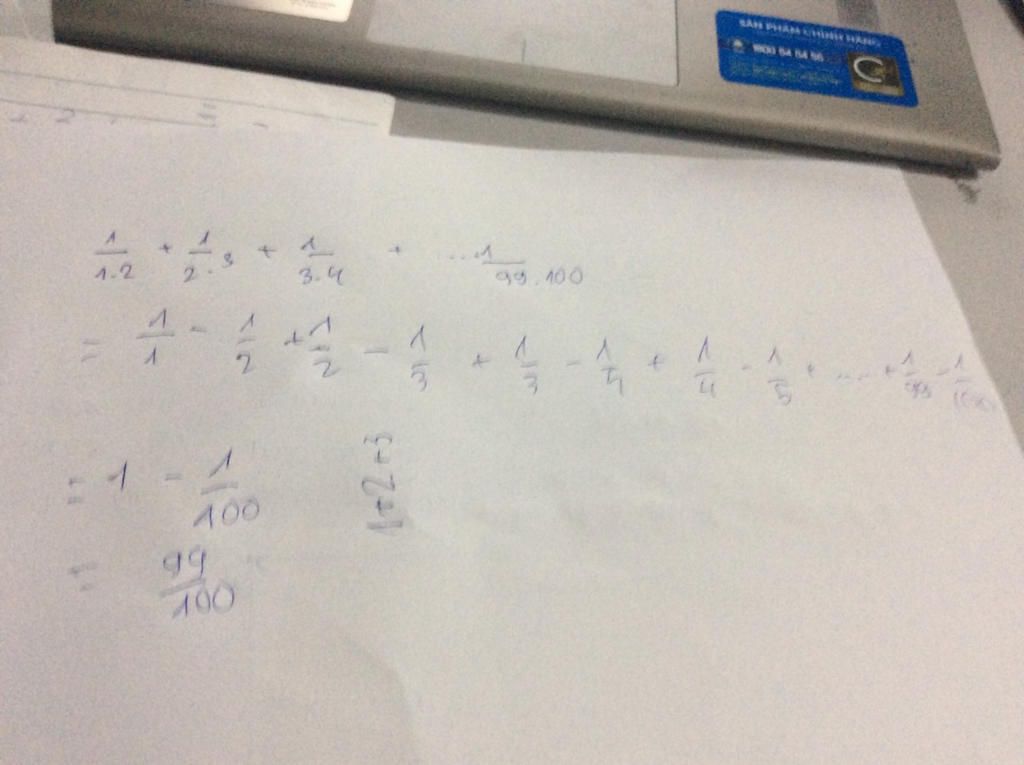 SẢN PHẨM CHÍNH HÃNG
1800 54 54 56
1/1.2 + 1/2.3 + 1/3.4 + ...1/99.100
= 1/1 - 1/2 + 1/2 - 1/3 + 1/3 - 1/4 + 1/4 - 1/5 + .... + 1/99 - 1/100
= 1 - 1/100
1+2+3
= 99/100